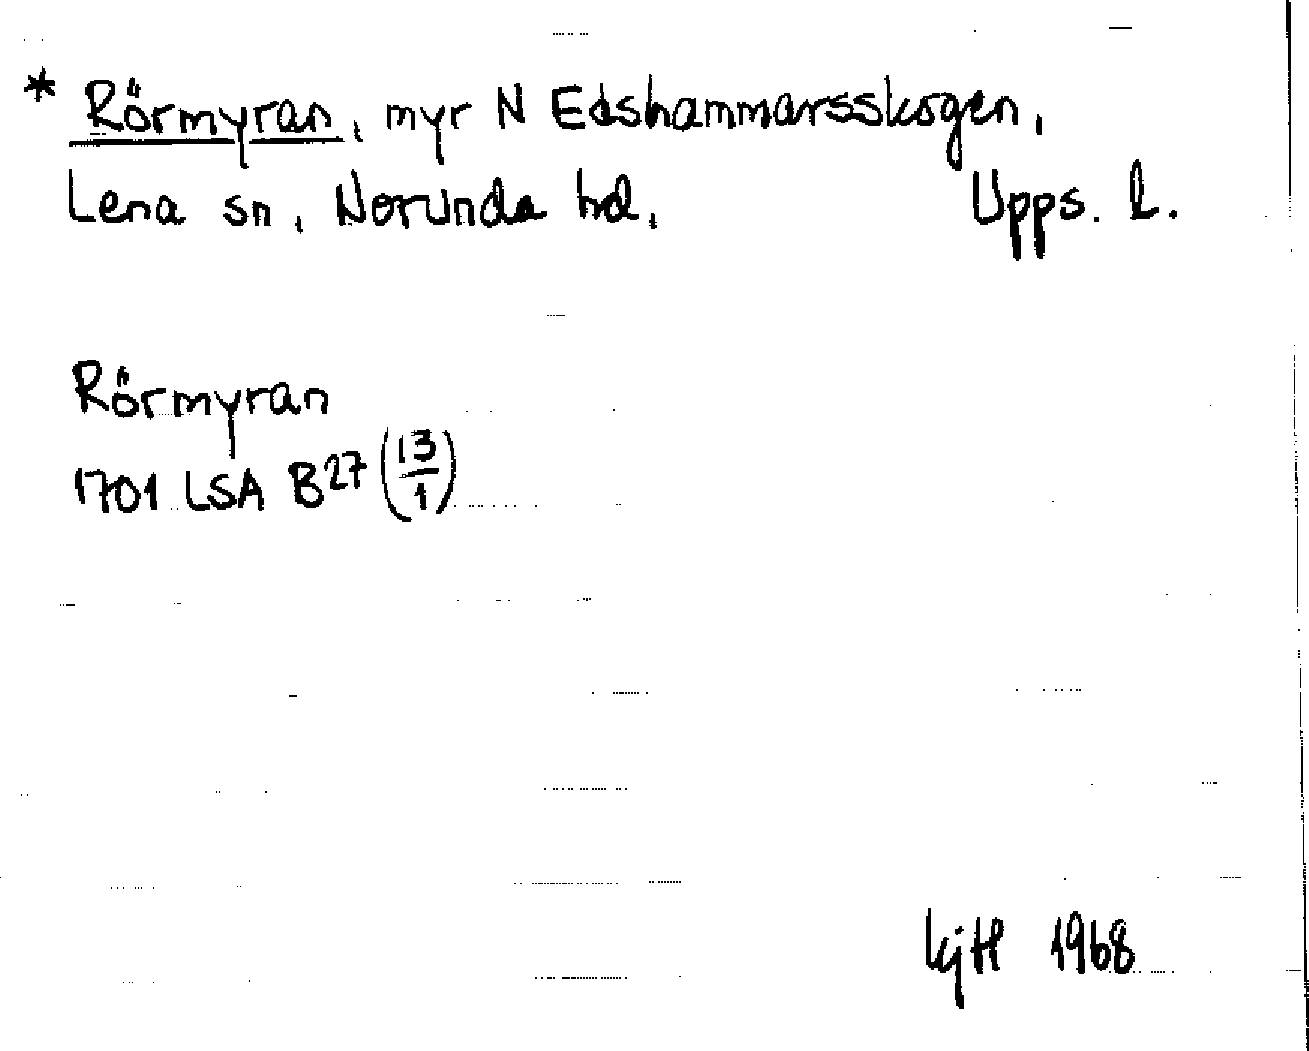 * Rörmyran, myr N Edshammarsskogen,
Lena sn, Norunda hd, Upps. l.
Rörmyran
1701 LSA B27 (13/1)
1968